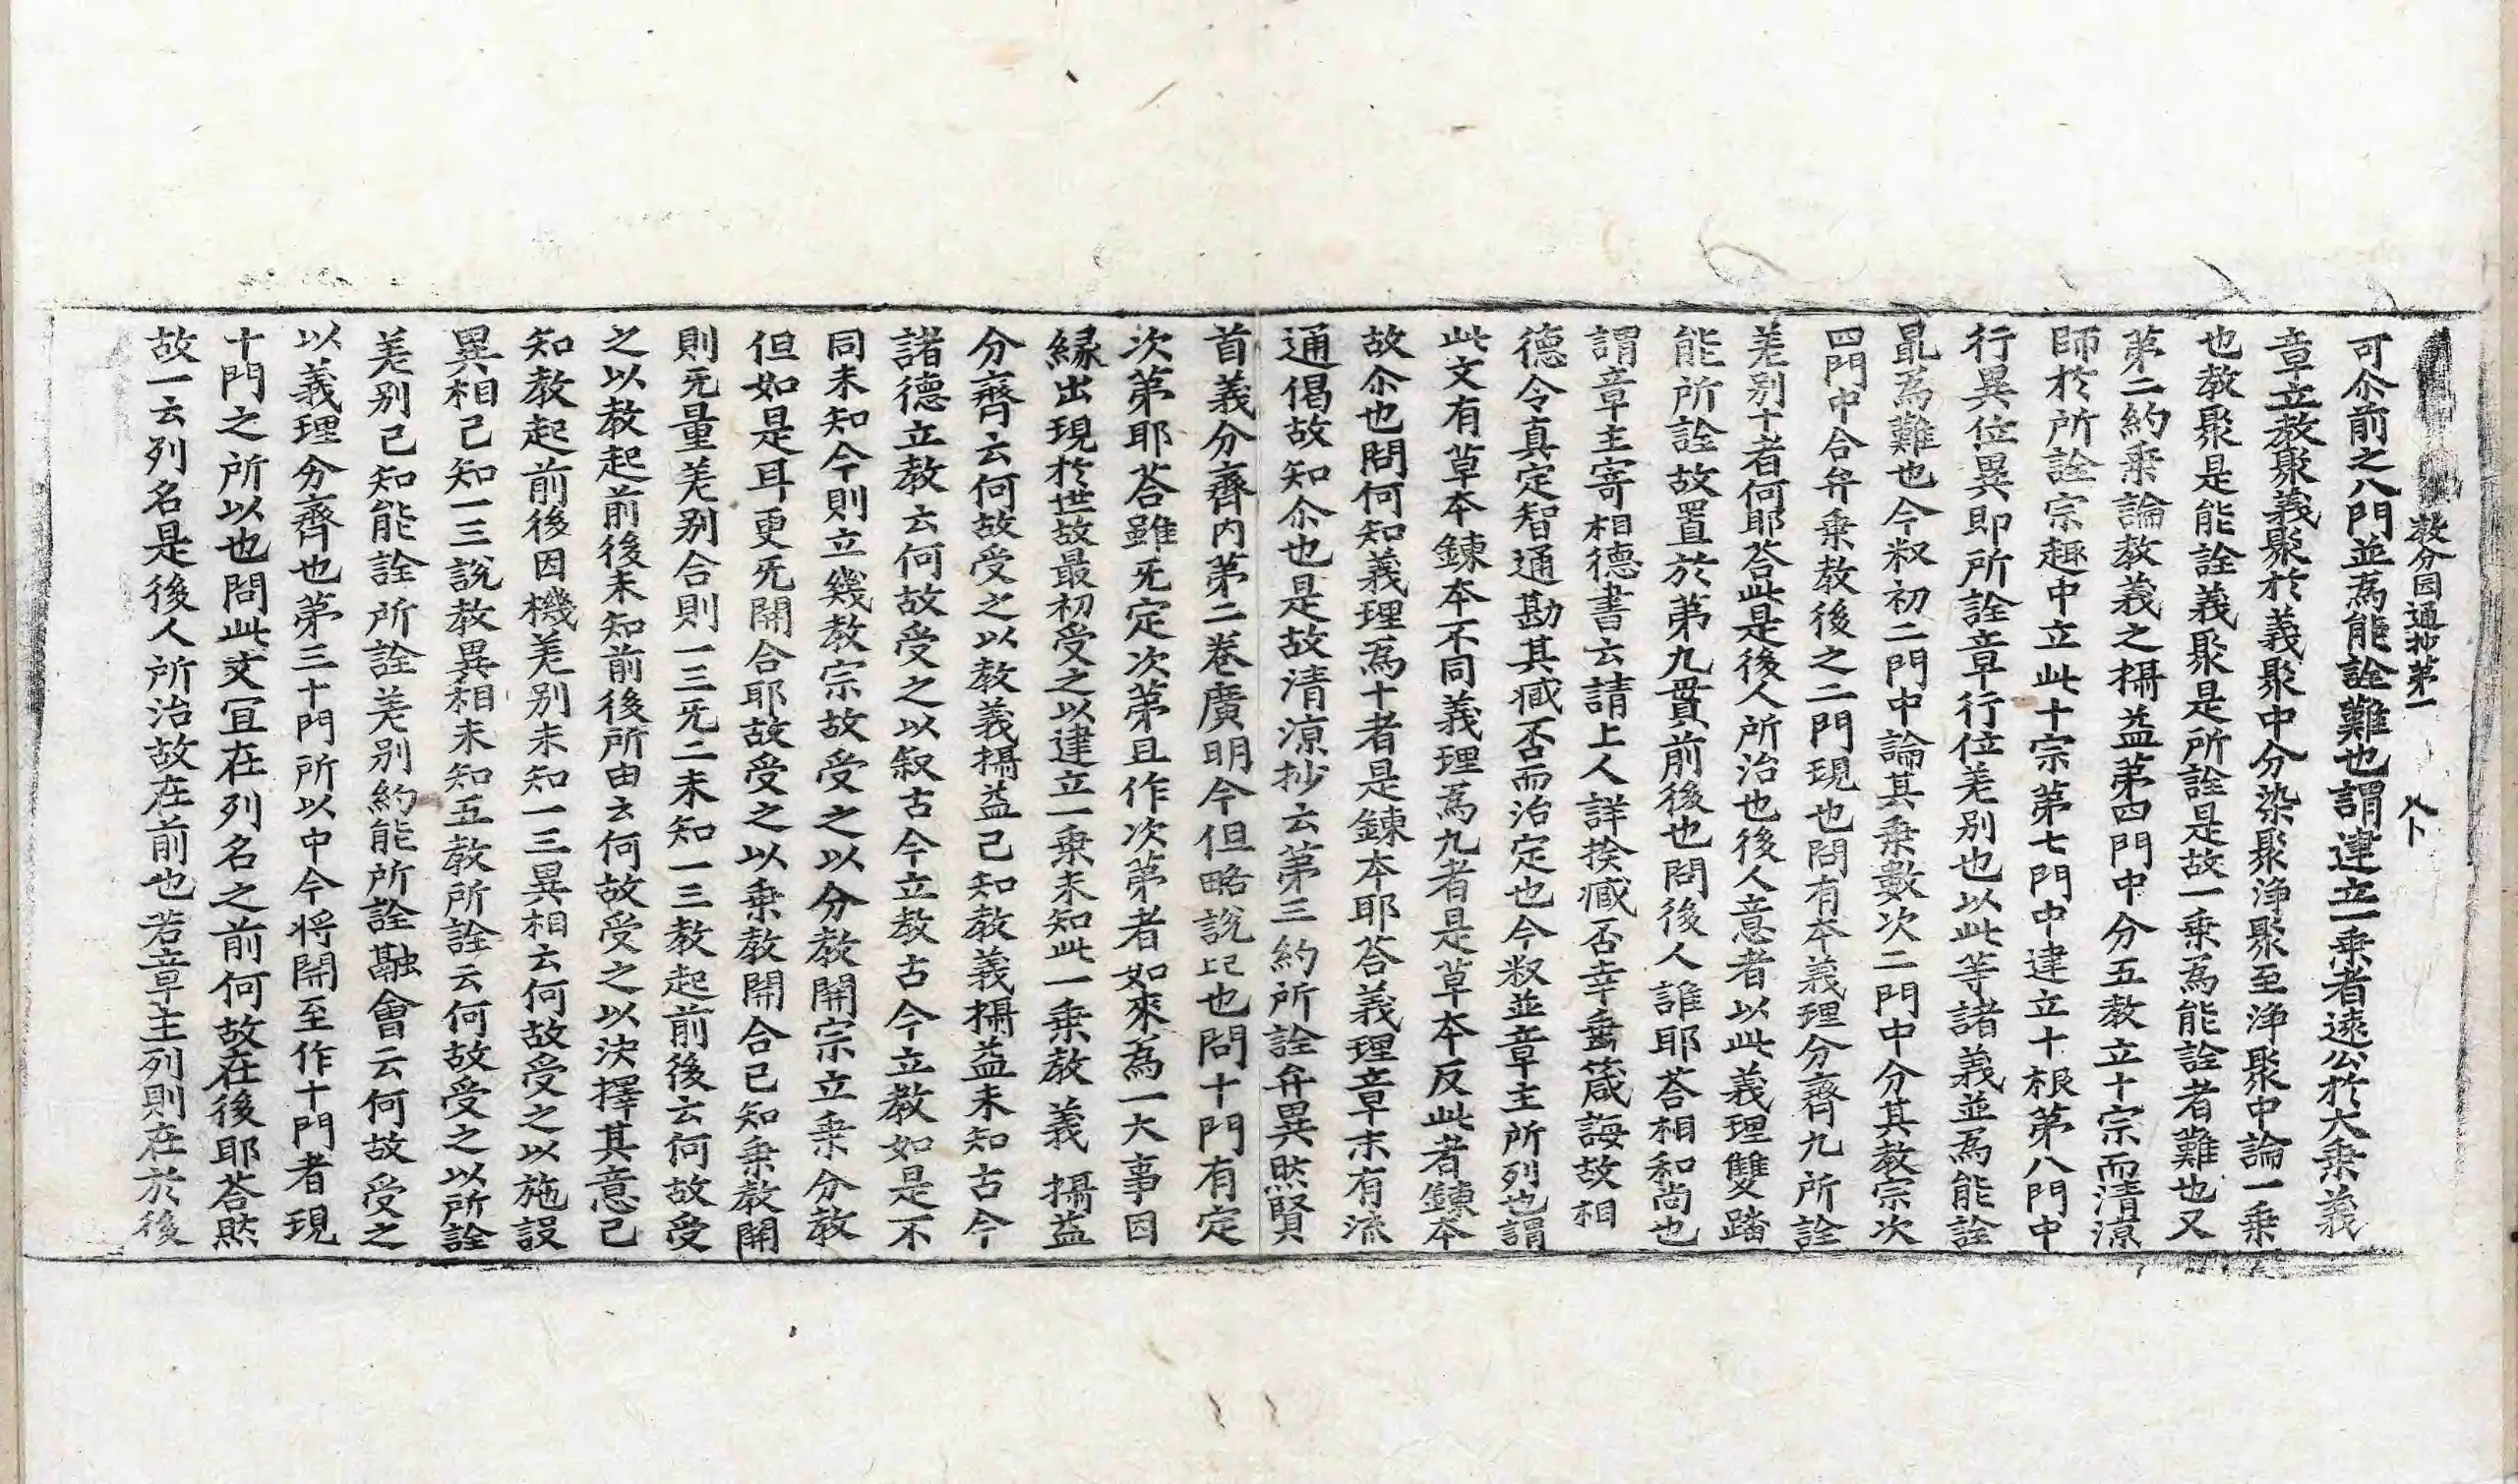 教分圓通抄第一 八卜
可尒前之八門並爲能詮難也謂建立一乗者遠公於大乗義
章立教聚義聚於義聚中分染聚淨聚至淨聚中論一乗
也教聚是能詮義聚是所詮是故一乗爲能詮者難也又
第二約乗論教義之攝益第四門中分五教立十宗而清涼
師於所詮宗趣中立此十宗第七門中建立十根第八門中
行異位異即所詮章行位差别也以此等諸義並爲能詮
㝡爲難也今釈初二門中論其乗數次二門中分其教宗次
四門中合弁乗教後之二門現也問有本義理分齊九所詮
差别十者何耶荅此是後人所治也後人意者以此義理雙踏
能所詮故置於第九貫前後也問後人誰耶荅相和尚也
謂章主寄相德書云請上人詳揆臧否幸垂箴誨故相
德令真定智通勘其臧否而治定也今釈並章主所列也謂
此文有草本鍊本不同義理爲九者是草本反此者鍊本
故尒也問何知義理爲十者是鍊本耶荅義理章末有流
通偈故知尒也是故清涼抄云第三約所詮弁異㷊賢
首義分齊内第二卷廣明今但略說上已也問十門有定
次第耶荅雖无定次第且作次第者如來爲一大事因
縁出現於世故最初受之以建立一乗未知此一乗教義攝益
分齊云何故受之以教義攝益已知教義攝益未知古今
諸德立教云何故受之以叙古今立教古今立教如是不
同未知今則立幾教宗故受之以分教開宗立乗分教
但如是耳更无開合耶故受之以乗教開合已知乗教開
則无量差别合則一三无二未知一三教起前後云何故受
之以教起前後未知前後所由云何故受之以决擇其意已
知教起前後因機差别未知一三異相云何故受之以施設
異相已知一三說教異相未知五教所詮云何故受之以所詮
差别已知能詮所詮差别約能所詮融會云何故受之
以義理分齊也第三十門所以中今将開至作十門者現
十門之所以也問此文冝在列名之前何故在後耶荅㷊
故一云列名是後人所治故在前也若章主列則在於後